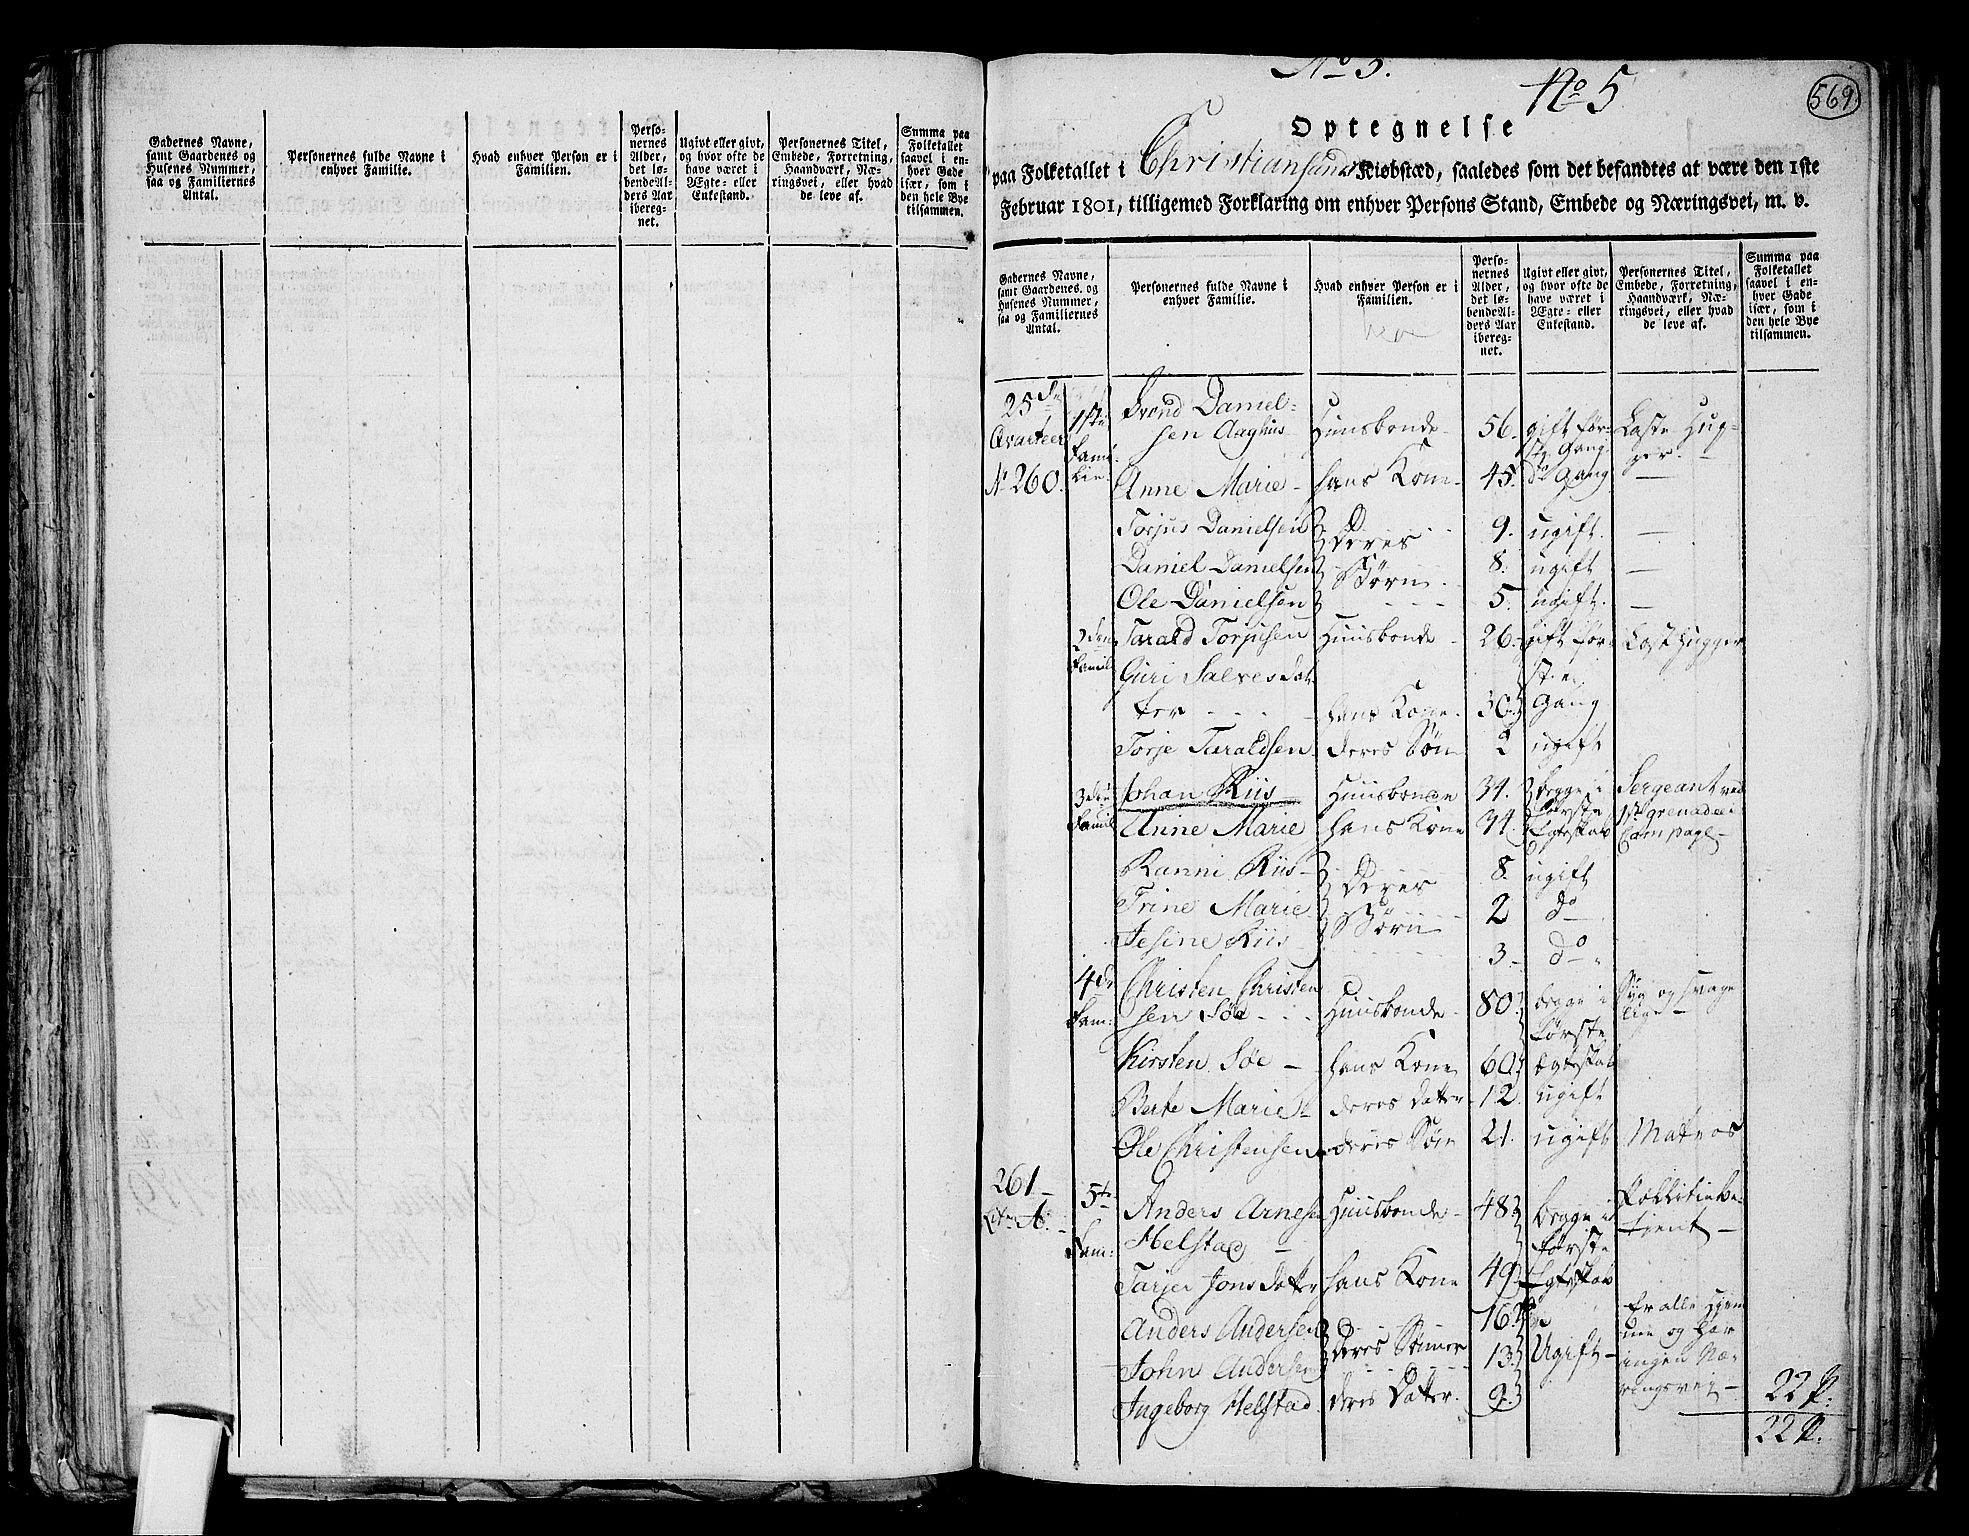 Gadernes Navne,
samt Gaardenes og
Husenes Nummer,
saa og Familiernes
Antal.
Personernes fulde Navne i
enhver Familie.
Hvad enhver Person er i
Familien.
Perso-
nernes
Alder,
det lø-
bende Al-
ders Aar
ibereg-
net.
Ugivt eller givt,
og hvor ofte de
have været i
Ægte- eller
Enkestand.
Personernes Titel,
Embede, Forretning,
Haandværk, Næ-
ringsvei, eller hvad
de leve af.
Summa paa
Folketallet
saavel i en-
hver Gade
især, som i
den hele Bye
tilsammen.
No 5.
No 5
569
Optegnelse
paa Folketallet i Christiansand Kiøbstæd, saaledes som det befandtes at være den 1ste
Februar 1801, tilligemed Forklaring om enhver Persons Stand, Embede og Næringsvei, m. v.
Gadernes Navne,
samt Gaardenes og
Husenes Nummer,
saa og Familiernes
Antal.
Personernes fulde Navne i
enhver Familie.
Hvad enhver Person er i
Familien.
Perso-
nernes
Alder,
det lø-
bende Al-
ders Aar
ibereg-
net.
Ugivt eller givt,
og hvor ofte de
have været i
Ægte- eller
Enkestand.
Personernes Titel,
Embede, Forretning,
Haandværk, Næ-
ringsvei, eller hvad
de leve af.
Summa paa
Folketallet
saavel i en-
hver Gade
især, som i
den hele Bye
tilsammen.
25de Qvarteer 1ste Fami-lie
No 260.
Svend Daniel-
sen Aaghus Huusbonde 56. gift før-ste Gang Laste Hug-ger
Anne Marie hans Kone 45. do Gang
Torjus Danielsen Deres 9. ugift
Daniel Danielsen Børn 8. ugift
Ole Danielsen 5. ugift
2den Famil Tarald Torjusen Huusbonde 26 gift før- Lasthugger
Guri Salvesdat- ste
ter hans Kone 30 Gang
Torje Taraldsen deres Søn 2 ugift
3die Famil Johan Riis Huusbonde 34. begge i Sergeant ved
Anne Marie hans Kone 34. første Egteskab 1ste grenadeer Compage
Ranni Riis Deres 8. ugift
Trine Marie Børn 2 do
Jesine Riis 3 do
4de Fam: Christen Christen
sen Søe Huusbonde 80 begge i Syg og svage
første lige
Kirsten Søe hans Kone 60 Egteskab
Berte Marie deres Datter 12. ugift
Ole Christensen deres Søn 21. ugift Matros
261 Litr A. 5te Fam: Anders Arnesen Huusbonde 48 begge i Pollitie be-
Helstad første tjent
Tarjer Jons Datter hans Kone 49 Egteskab
Anders Andersen 16 Er alle hjem
John Andersen deres Sønner 13 Ugift me og har
Ingeborg Helstad deres Datter 9. ingen Næ-
ringsvei
22 P:
22 P.